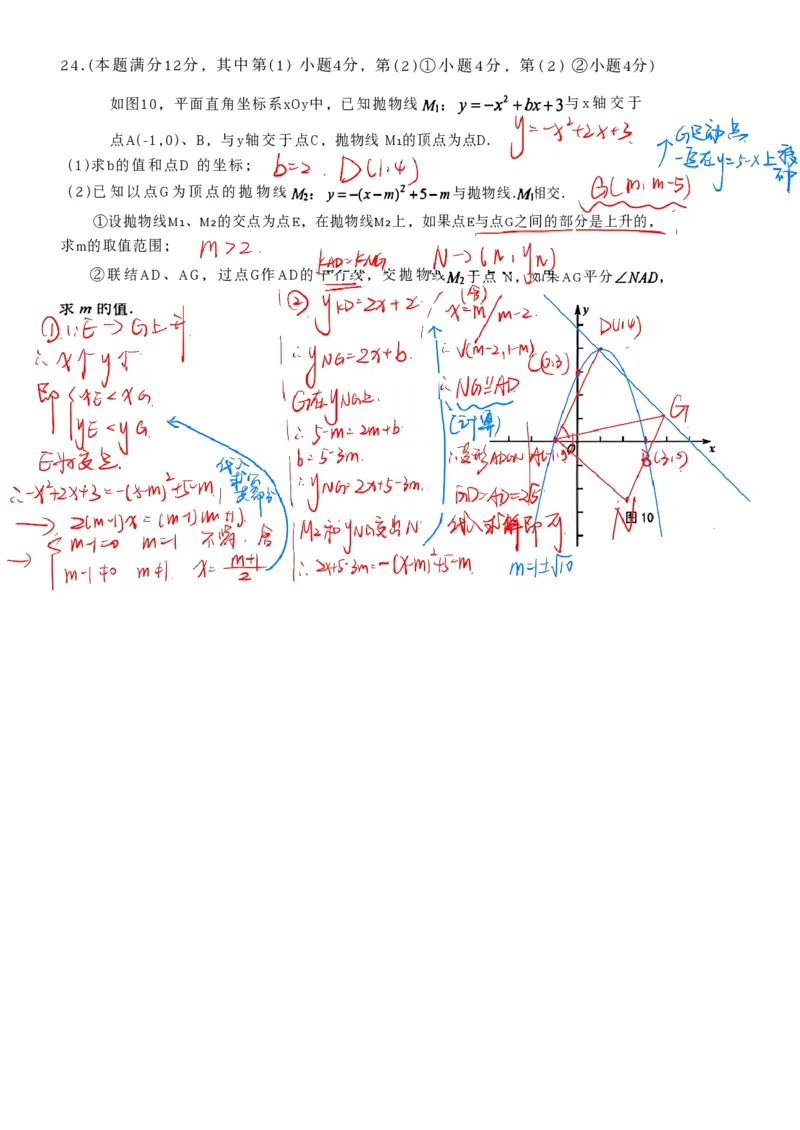 24.(本题满分12分，其中第(1)小题4分，第(2)①小题4分，第(2)②小题4分)
如图10，平面直角坐标系xOy中，已知抛物线 M₁： y=-x²+bx+3与x轴交于
y=-x²+2x+3
点A(-1,0)、B，与y轴交于点C，抛物线 M₁的顶点为点D.
G运动点
一定在y=5-x上移动
(1)求b的值和点D 的坐标；
b=2. D(1,4)
(2)已知以点G为顶点的抛物线 M₂： y=-(x-m)²+5-m与抛物线.M₁相交.
G(m,m-5)
①设抛物线M₁、M₂的交点为点E，在抛物线M₂上，如果点E与点G之间的部分是上升的，
求m的取值范围；
m>2.
kAD=kNG
N→(n,yn)
②联结AD、AG，过点G作AD的平行线，交抛物线M₂于点 N，如果AG平分∠NAD，
求 m 的值.
①∵E→G上升
∴x↑y↑
即{xE<xG
yE<yG
E为交点.
∴-x²+2x+3=-(x-m)²+5-m
→2(m-1)x=(m-1)(m+1)
m-1=0 m=1 不符，舍
→ m-1≠0 m≠1. x=m+1/2
代入
② yAD=2x+2
∴yNG=2x+b.
G在yNG上.
∴5-m=2m+b
b=5-3m.
∴yNG=2x+5-3m.
M₂和yNG交出N
∴2x+5-3m=-(x-m)²+5-m
(舍)
x=m/m-2.
∴N(m-2,1-m)
∴NG∥AD
(计算)
∴菱形ADGN
GD=AD=2√5
代入求解即可
m=1±√10
y
D(1,4)
C(0,3)
G
A(-1,0)
O
B(3,0)
x
N
图10